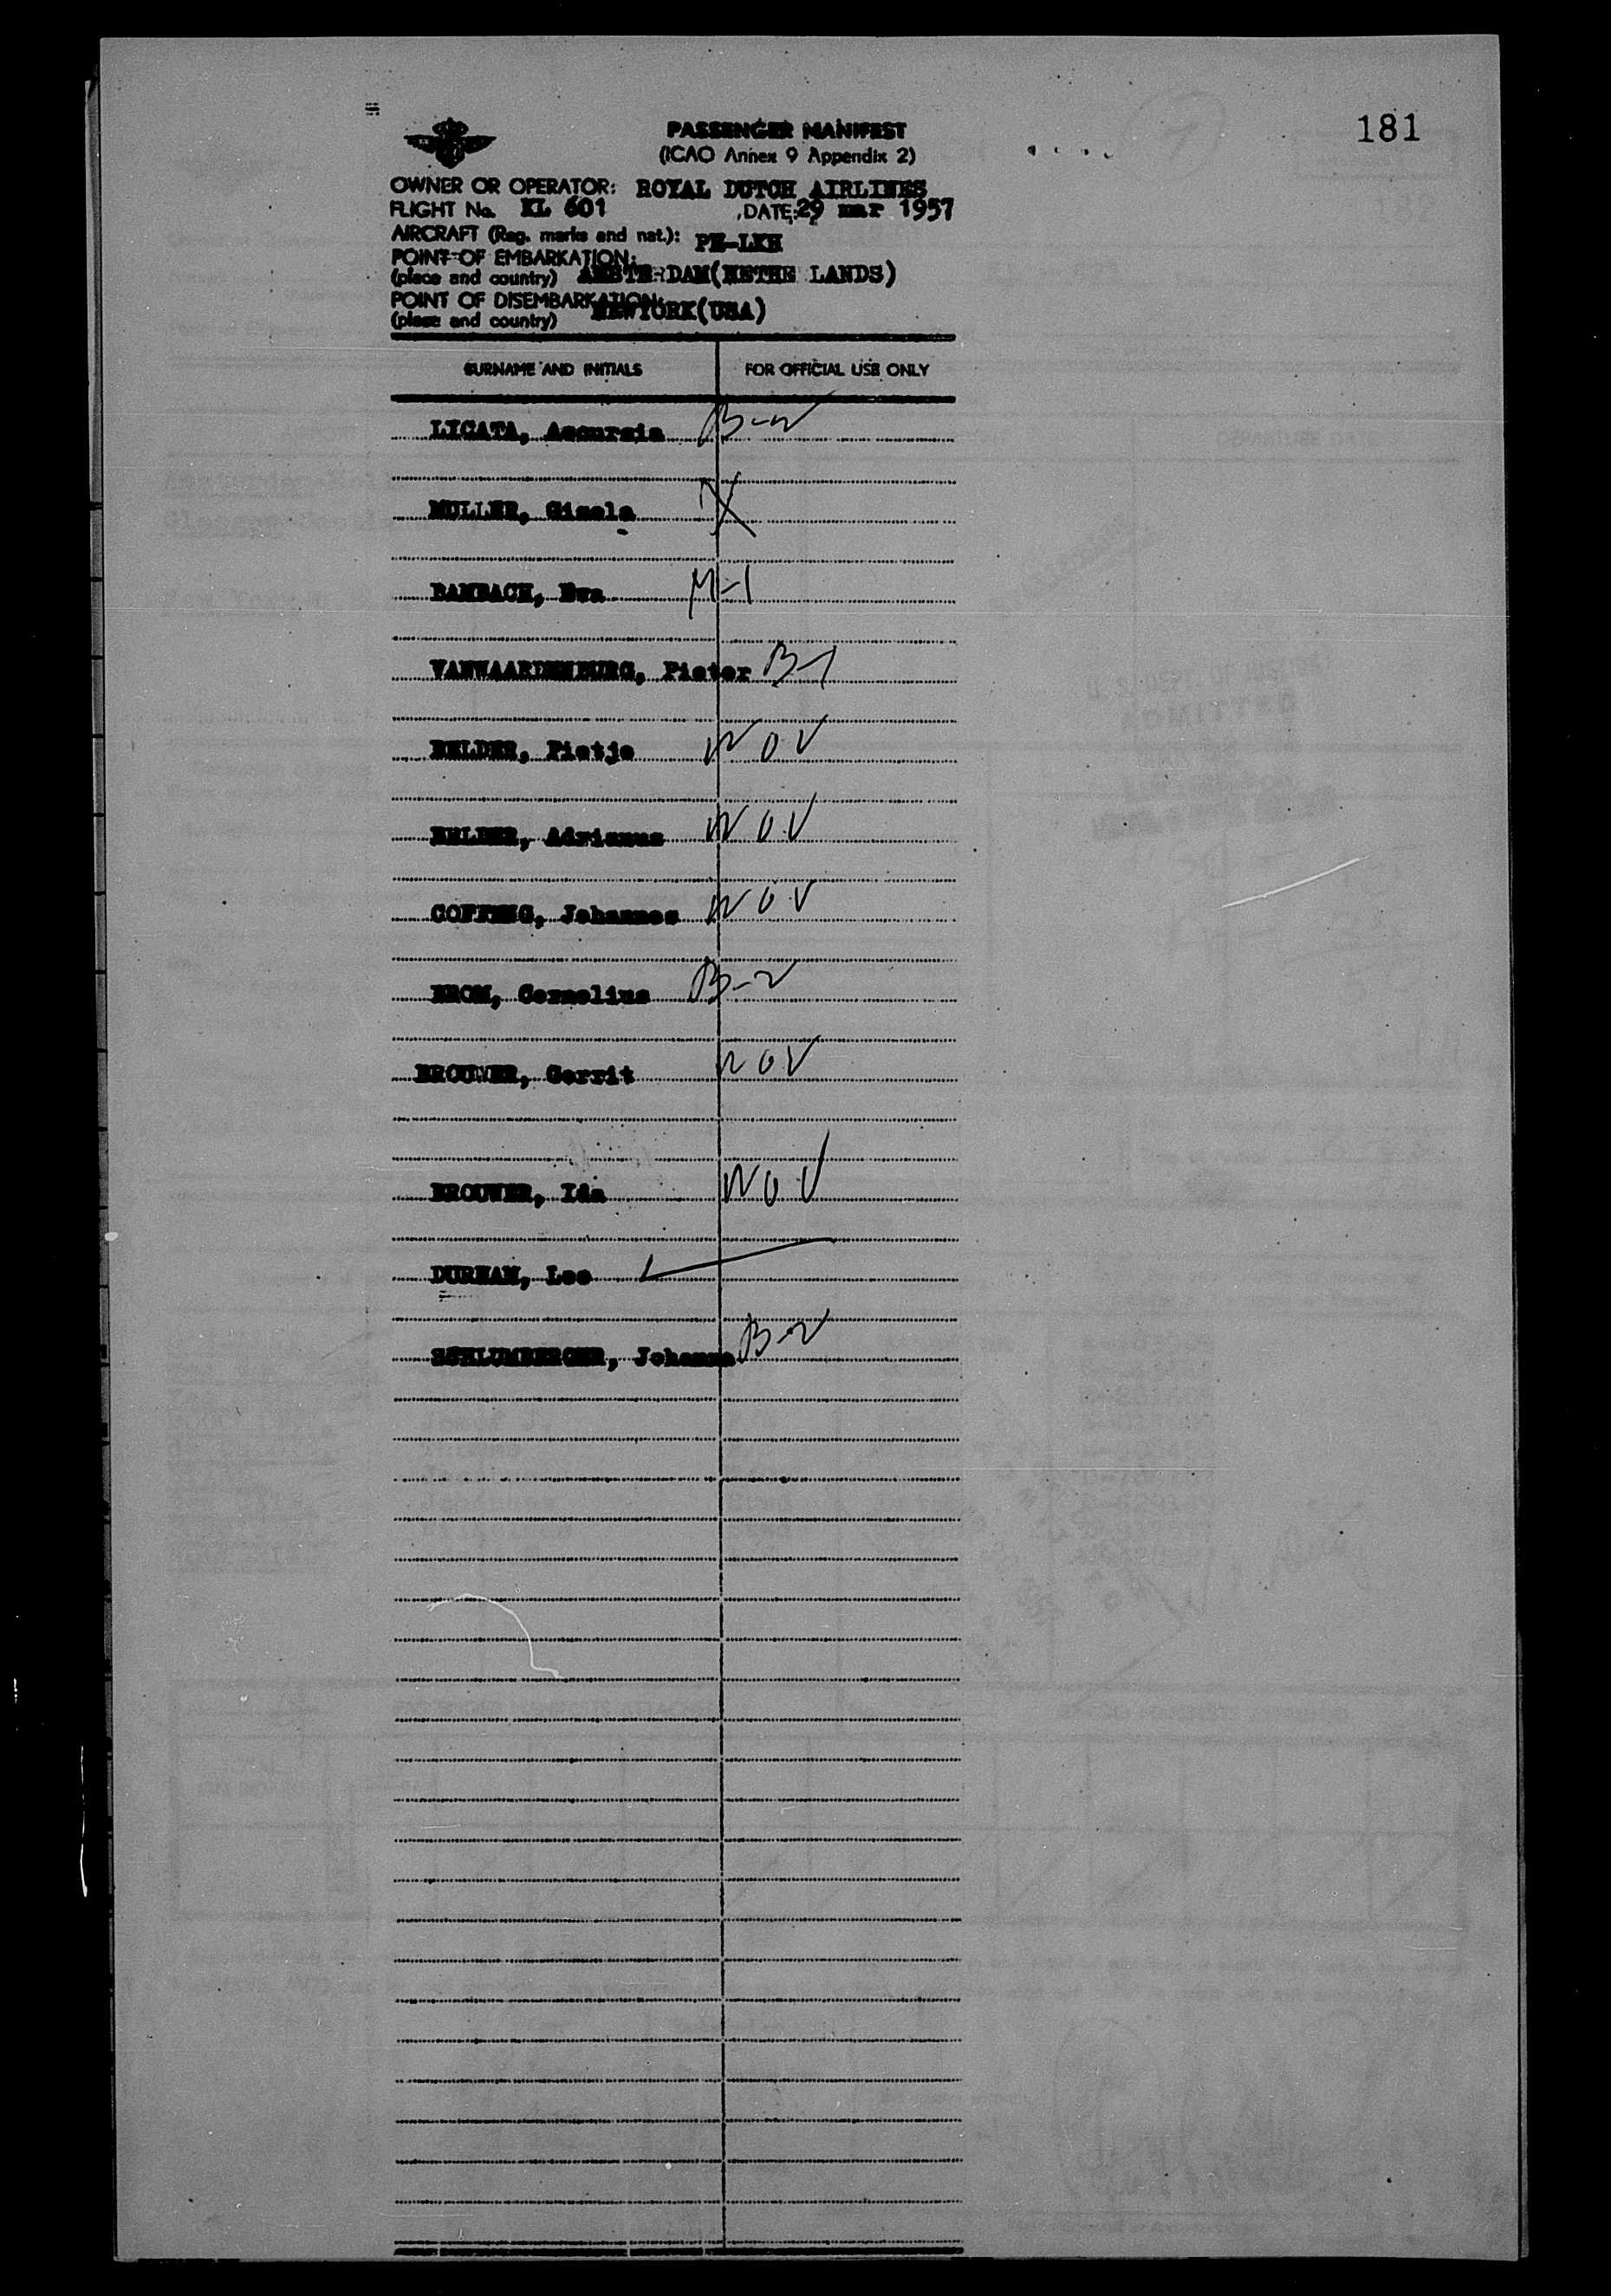 181
PASSENGER MANIFEST
(ICAO Annex 9 Appendix 2)
OWNER OR OPERATOR: ROYAL DUTCH AIRLINES
FLIGHT No. KL 601 DATE: 29 mar 1957
AIRCRAFT (Reg. marks and nat.): PH-LKH
POINT OF EMBARKATION:
(place and country) AMSTERDAM(NETHE LANDS)
POINT OF DISEMBARKATION:
(place and country) NEWYORK(USA)
SURNAME AND INITIALS FOR OFFICIAL USE ONLY
LICATA, Accursia B-2
MULLER, Gisela X
BAMBACH, Eva M-1
VANWAARDENBURG, Pieter B-1
BELDER, Pietje NOV
BELDER, Adrianus NOV
Johannes NOV
KROM, Cornelius B-2
BROUWER, Gerrit NOV
BROUWER, Ida NOV
DURHAM, Lee
SCHLUMBERGER, Johanna B-2